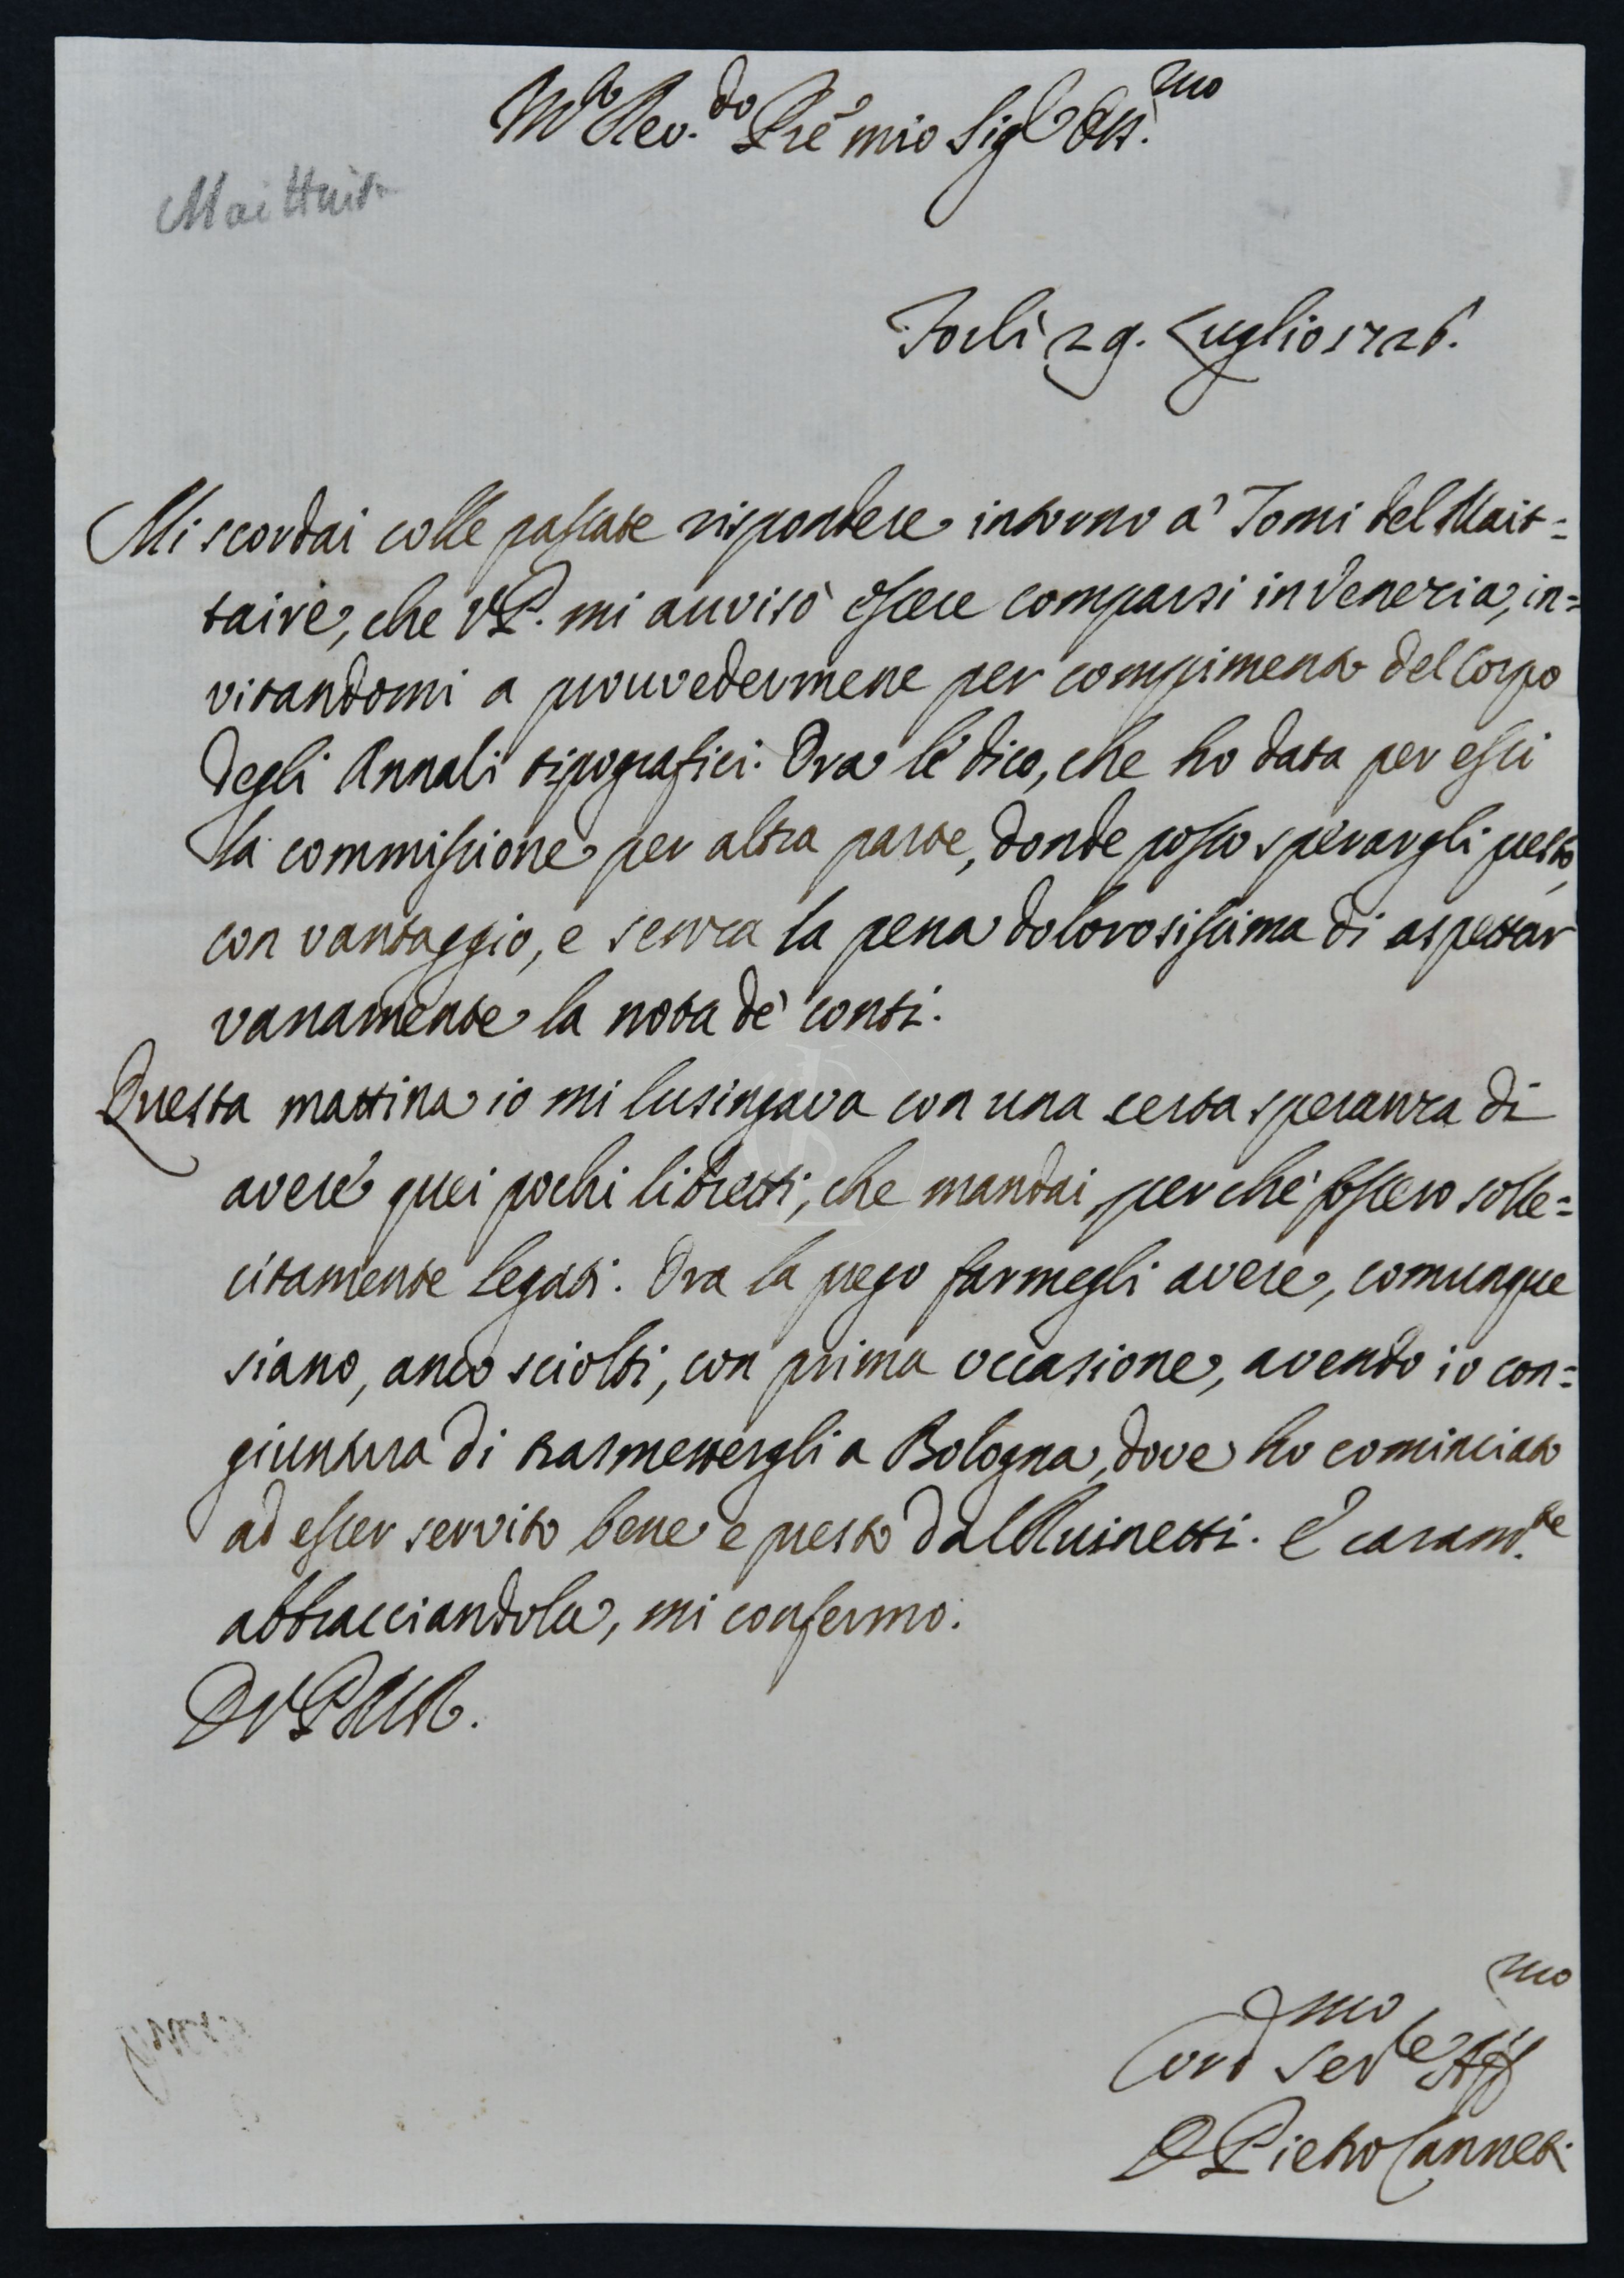 M.to Rev.do Pre mio Sig.r Oss.mo
Forlì 29. Luglio 1726.
Mi scordai colle passate rispondere intorno a' Tomi del Mait=
taire, che V.P. mi avvisò essere comparsi in Venezia, in=
vitandomi a provvedermene per compimento del Corpo
degli Annali tipografici. Ora le dico, che ho data per essi
la commissione per altra parte, donde posso sperargli presto,
con vantaggio, e senza la pena dolorosissima di aspettar
vanamente la nota de' conti.
Questa mattina io mi lusingava con una certa speranza di
avere quei pochi libretti, che mandai perche fossero solle=
citamente legati. Ora la prego farmegli avere, comunque
siano, anco sciolti, con prima occasione, avendo io con=
giuntura di trasmettergli a Bologna, dove ho cominciato
ad esser servito bene e presto dal Ruinetti. E caram.te
abbracciandola, mi confermo.
D V P M R.
Serv.e Aff.mo
D Pietro Canneti